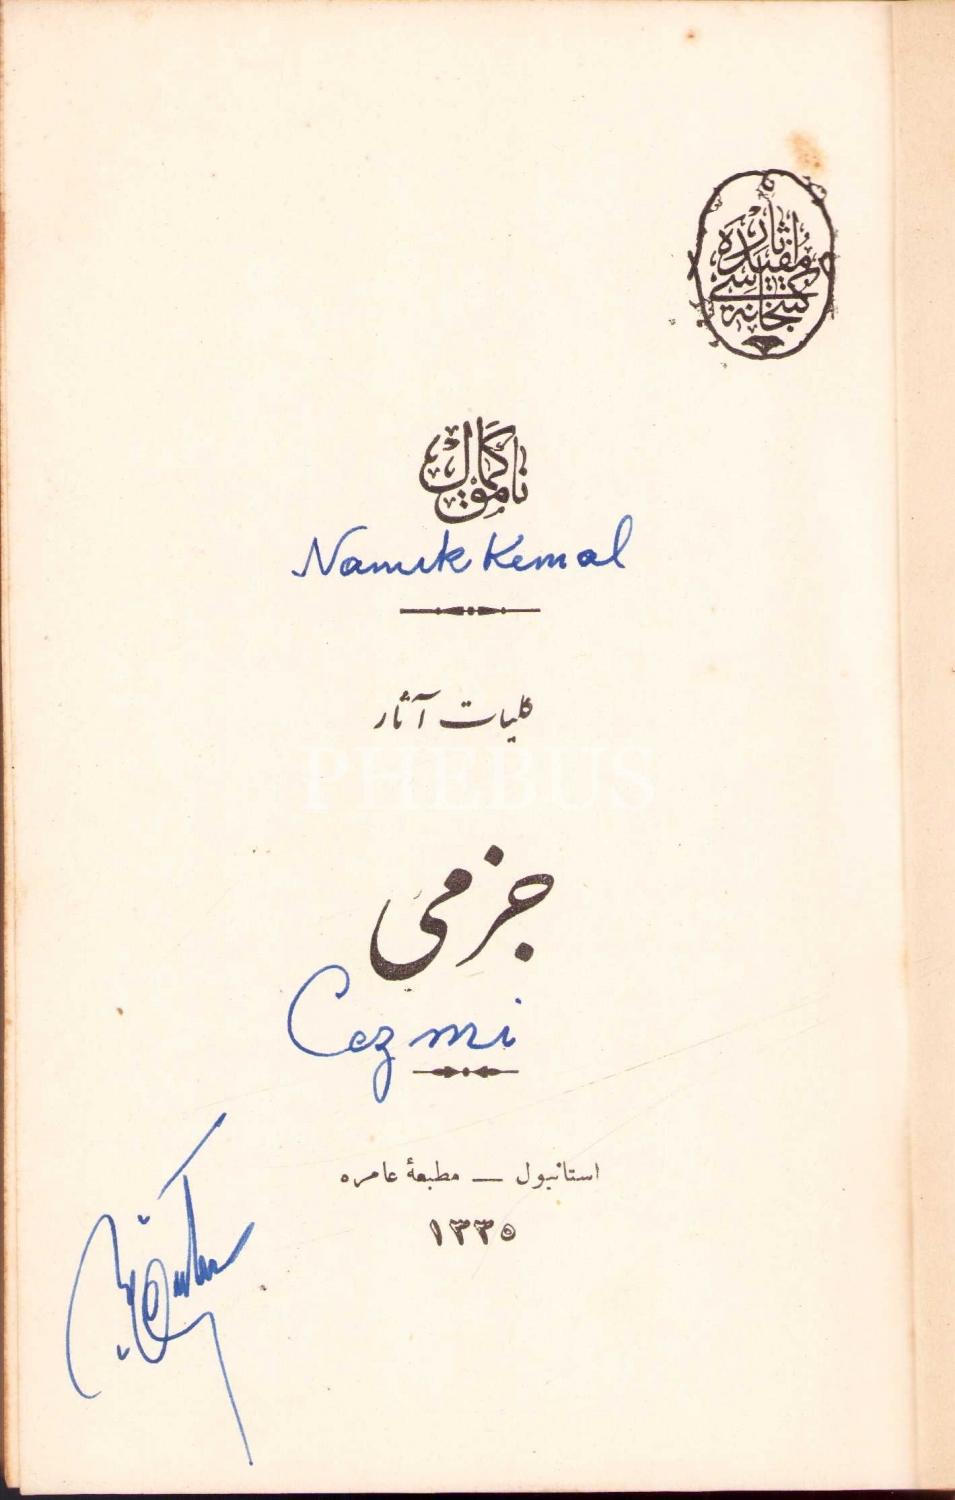 آثار مفيده
كتبخانه سى
نامق كمال
Namık Kemal
كليات آثار
PHEBUS
جزمى
Cezmi
استانبول — مطبعهٔ عامره
١٣٣٥